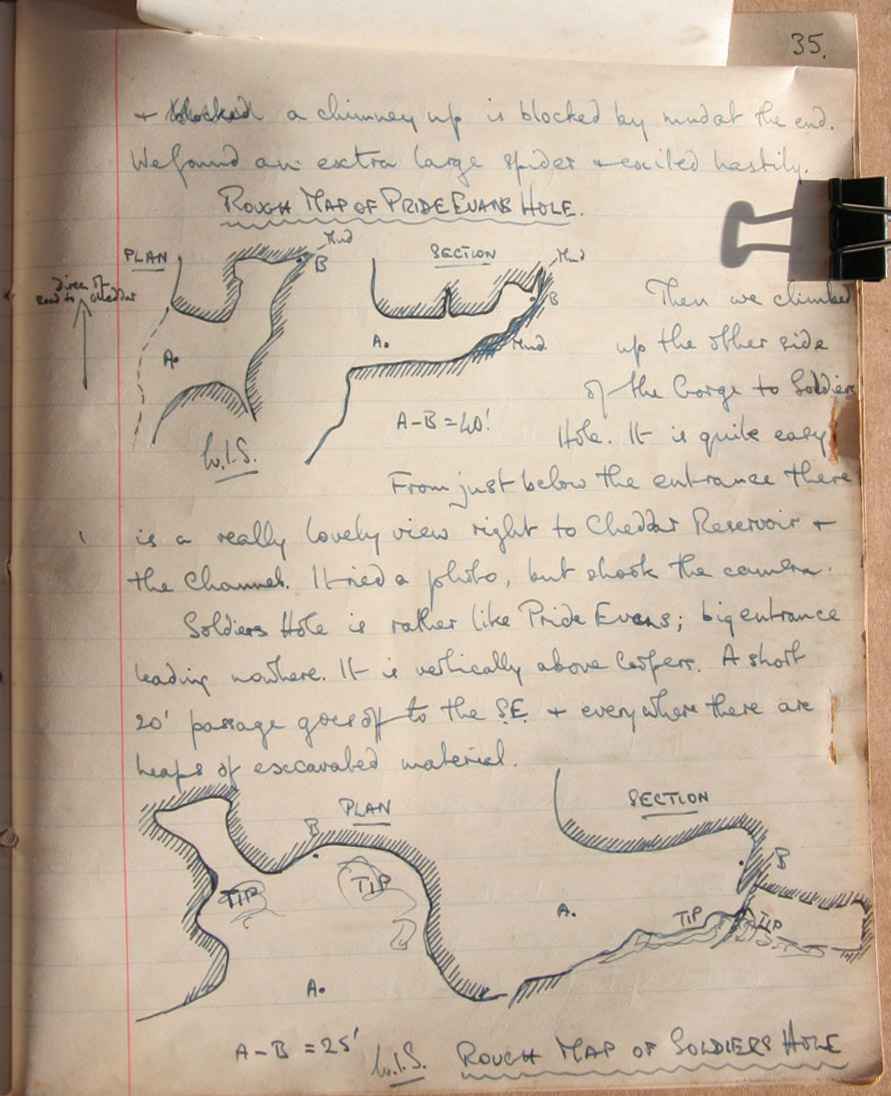 35.
+ blocked a chimney up is blocked by mud at the end.
We found an extra large spider + exited hastily.
ROUGH MAP OF PRIDE EVANS HOLE.
PLAN
Mud
B
SECTION
Mud
B
Direcn of
road to Cheddar
A.
A.
Mud
A-B = 40'
W.I.S.
Then we climbed
up the other side
of the Gorge to Soldiers
Hole. It is quite easy
From just below the entrance there
is a really lovely view right to Cheddar Reservoir +
the Channel. I tried a photo, but shook the camera.
Soldiers Hole is rather like Pride Evans; big entrance
leading nowhere. It is vertically above Coopers. A short
20' passage goes off to the S.E. + everywhere there are
heaps of excavated material.
PLAN
SECTION
B
B
TIP
TIP
A.
TIP
TIP
A.
A-B = 25'
W.I.S.
ROUGH MAP OF SOLDIERS HOLE